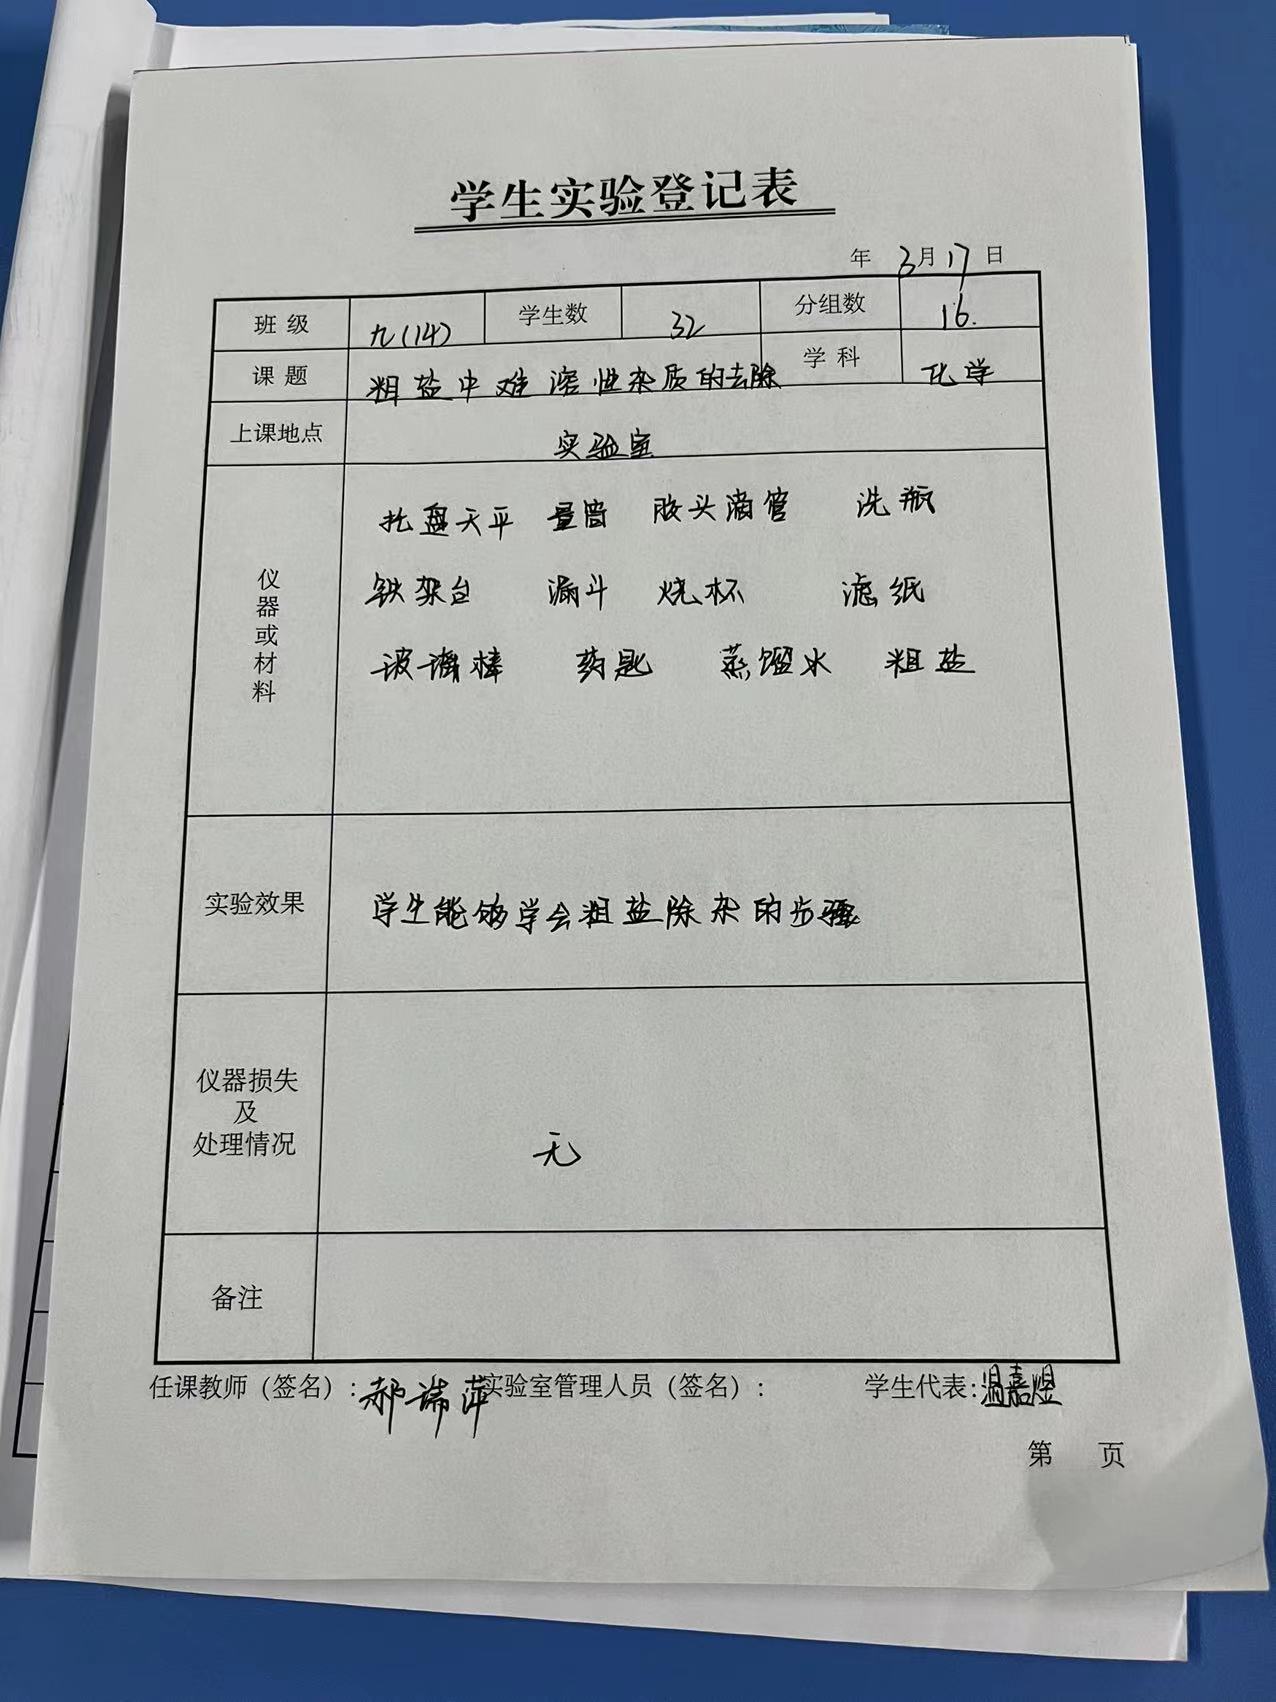 学生实验登记表
年 3月17日
班级 九(14) 学生数 32 分组数 16.
课题 粗盐中难溶性杂质的去除 学科 化学
上课地点 实验室
仪器或材料
托盘天平 量筒 胶头滴管 洗瓶
铁架台 漏斗 烧杯 滤纸
玻璃棒 药匙 蒸馏水 粗盐
实验效果 学生能够学会粗盐除杂的步骤
仪器损失
及
处理情况
无
备注
任课教师（签名）：郝瑞萍 实验室管理人员（签名）： 学生代表：温嘉煜
第 页